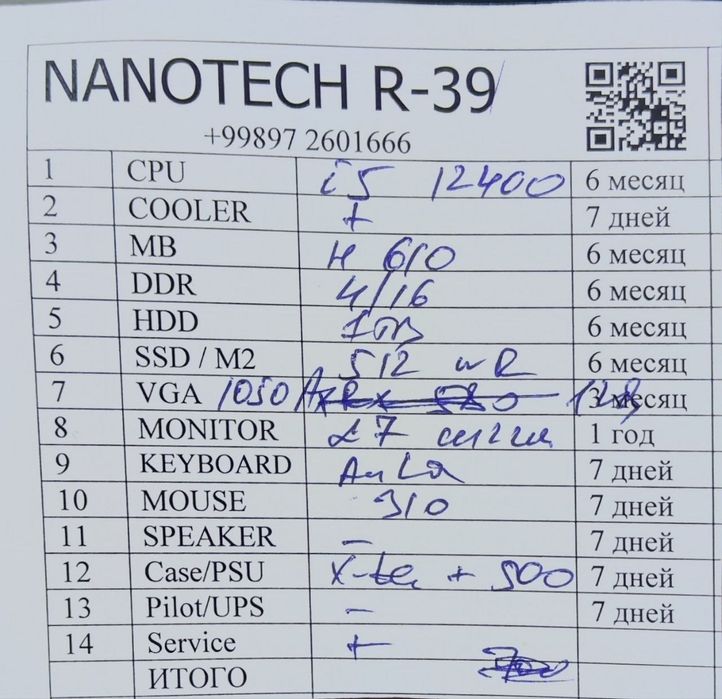 NANOTECH R-39
+99897 2601666
1 CPU i5 12400 6 месяц
2 COOLER + 7 дней
3 MB H 610 6 месяц
4 DDR 4/16 6 месяц
5 HDD 1TB 6 месяц
6 SSD / M2 512 6 месяц
7 VGA 1050 3 месяц
8 MONITOR 27 1 год
9 KEYBOARD Aula 7 дней
10 MOUSE 310 7 дней
11 SPEAKER – 7 дней
12 Case/PSU + 500 7 дней
13 Pilot/UPS – 7 дней
14 Service +
ИТОГО